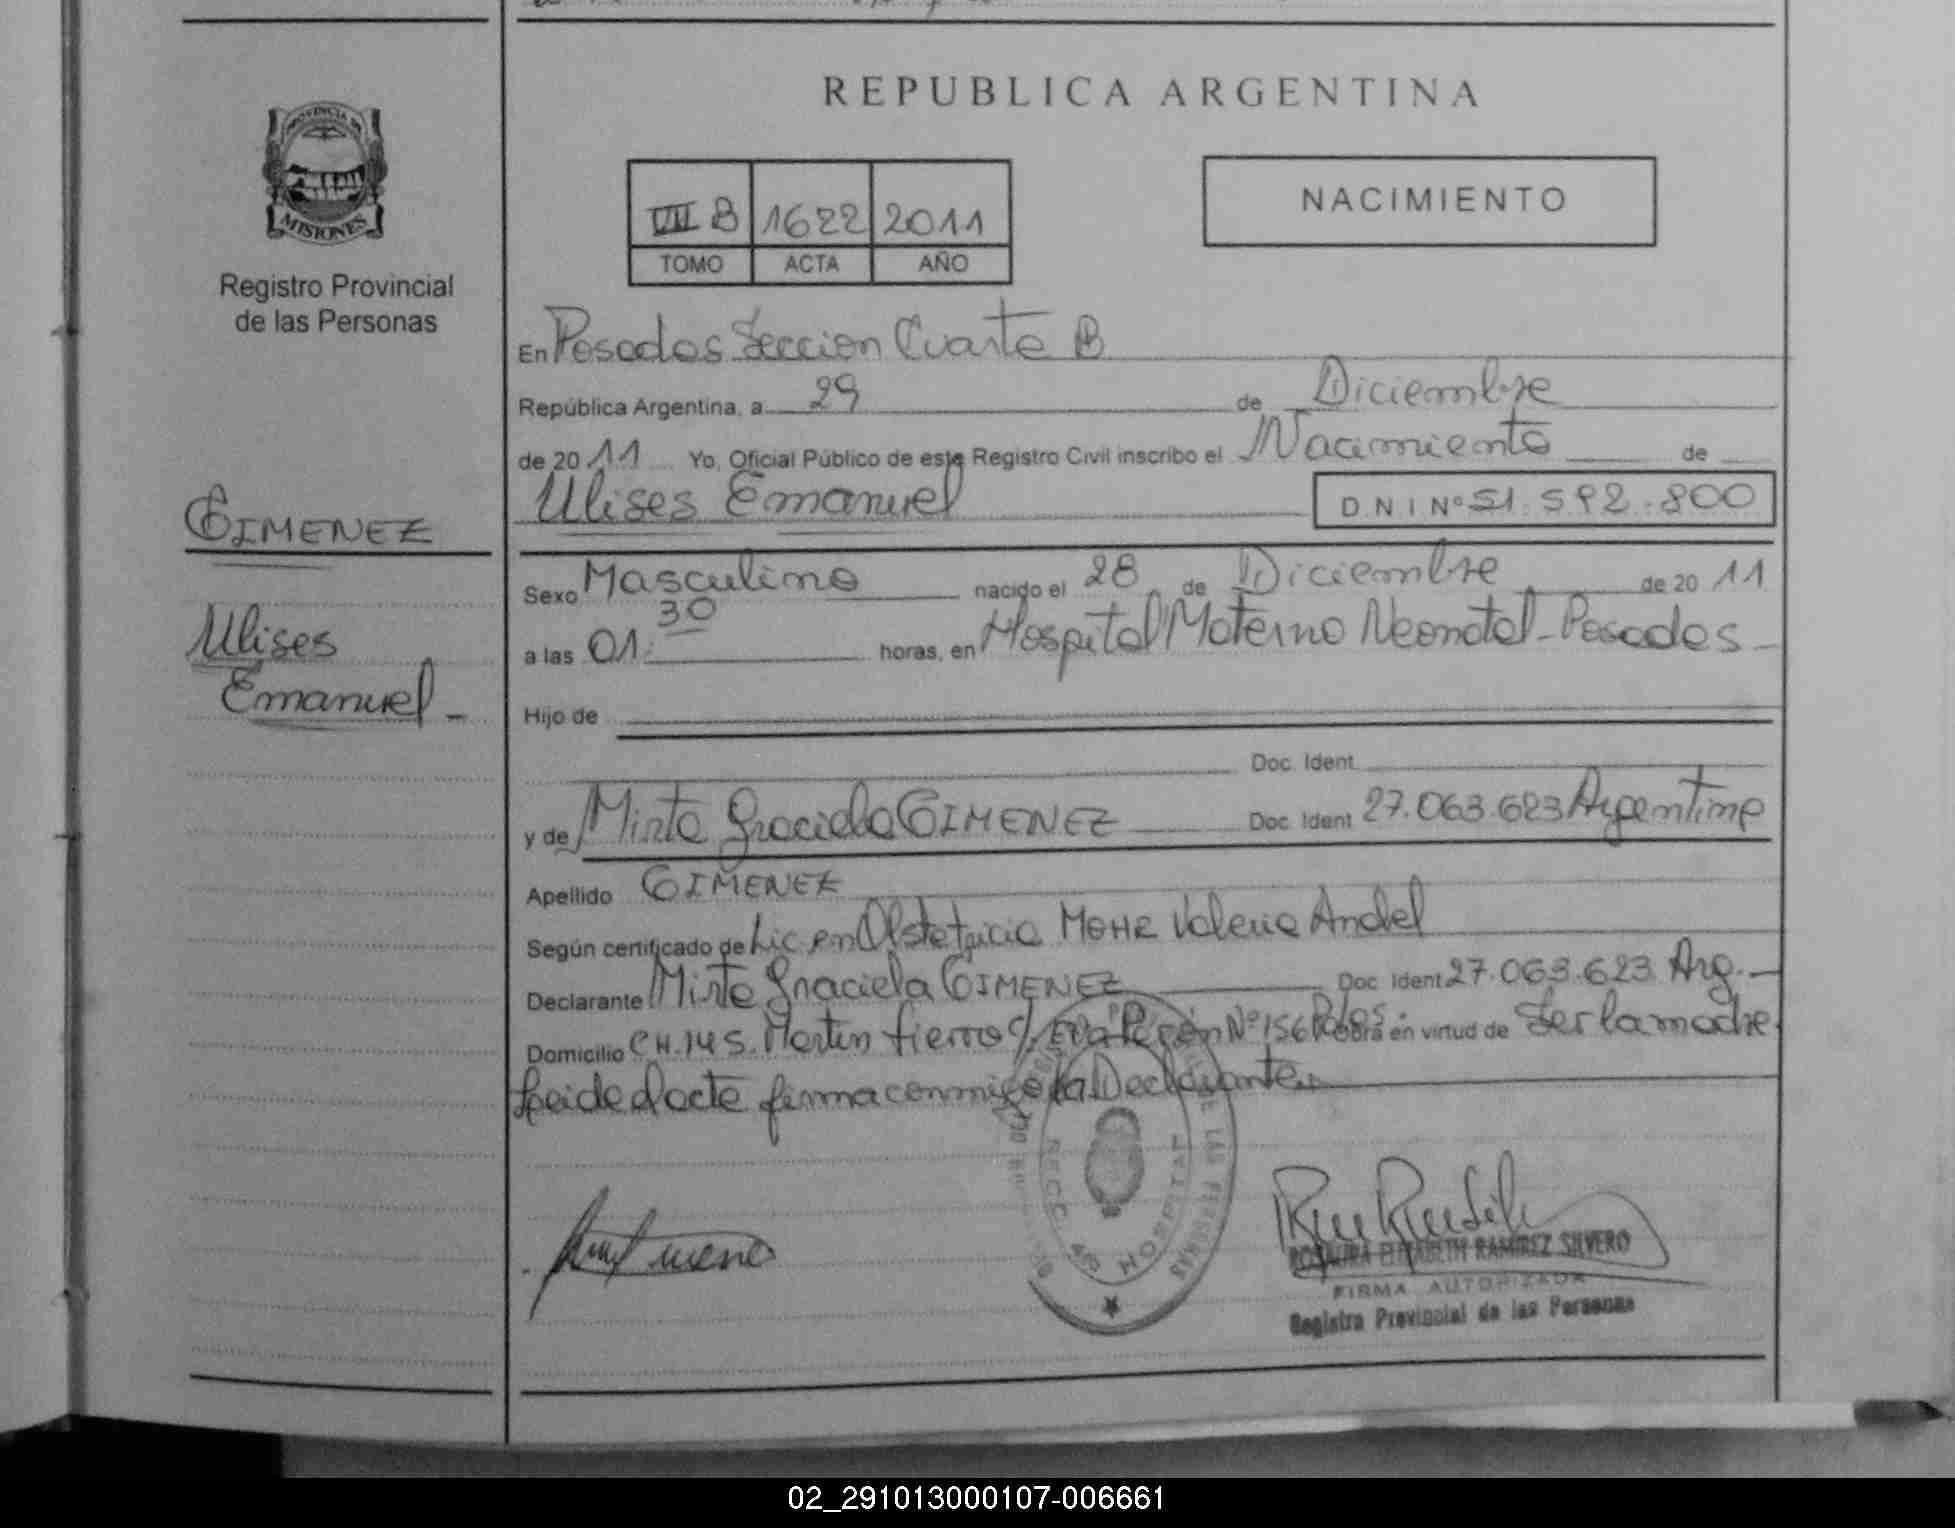 REPUBLICA ARGENTINA
PROVINCIA DE
MISIONES
Registro Provincial
de las Personas
VII B 1622 2011
TOMO ACTA AÑO
NACIMIENTO
En Posadas Seccion Cuarta B
República Argentina, a 29 de Diciembre
de 20 11 Yo, Oficial Público de este Registro Civil inscribo el Nacimiento de
Ulises Emanuel D.N.I Nº 51.592.800
GIMENEZ
Ulises
Emanuel -
Sexo Masculino nacido el 28 de Diciembre de 20 11
a las 01:30 horas, en Hospital Materno Neonatal - Posadas -
Hijo de
Doc. Ident.
y de Mirta Graciela GIMENEZ Doc. Ident 27.063.623 Argentina
Apellido GIMENEZ
Según certificado de Lic en Obstetricia MOHR Valeria Anabel
Declarante Mirta Graciela GIMENEZ Doc. Ident 27.063.623 Arg. -
Domicilio CH.145. Martin fierro C/ Eva Perón Nº 156 Pdas. Obra en virtud de Ser la madre.
Leida el acta firma conmigo la Declarante
SECC. 4B HOSPITAL
DE LAS PERSONAS
ROSAURA ELIZABETH RAMIREZ SILVERO
FIRMA AUTORIZADA
Registro Provincial de las Personas
02_291013000107-006661